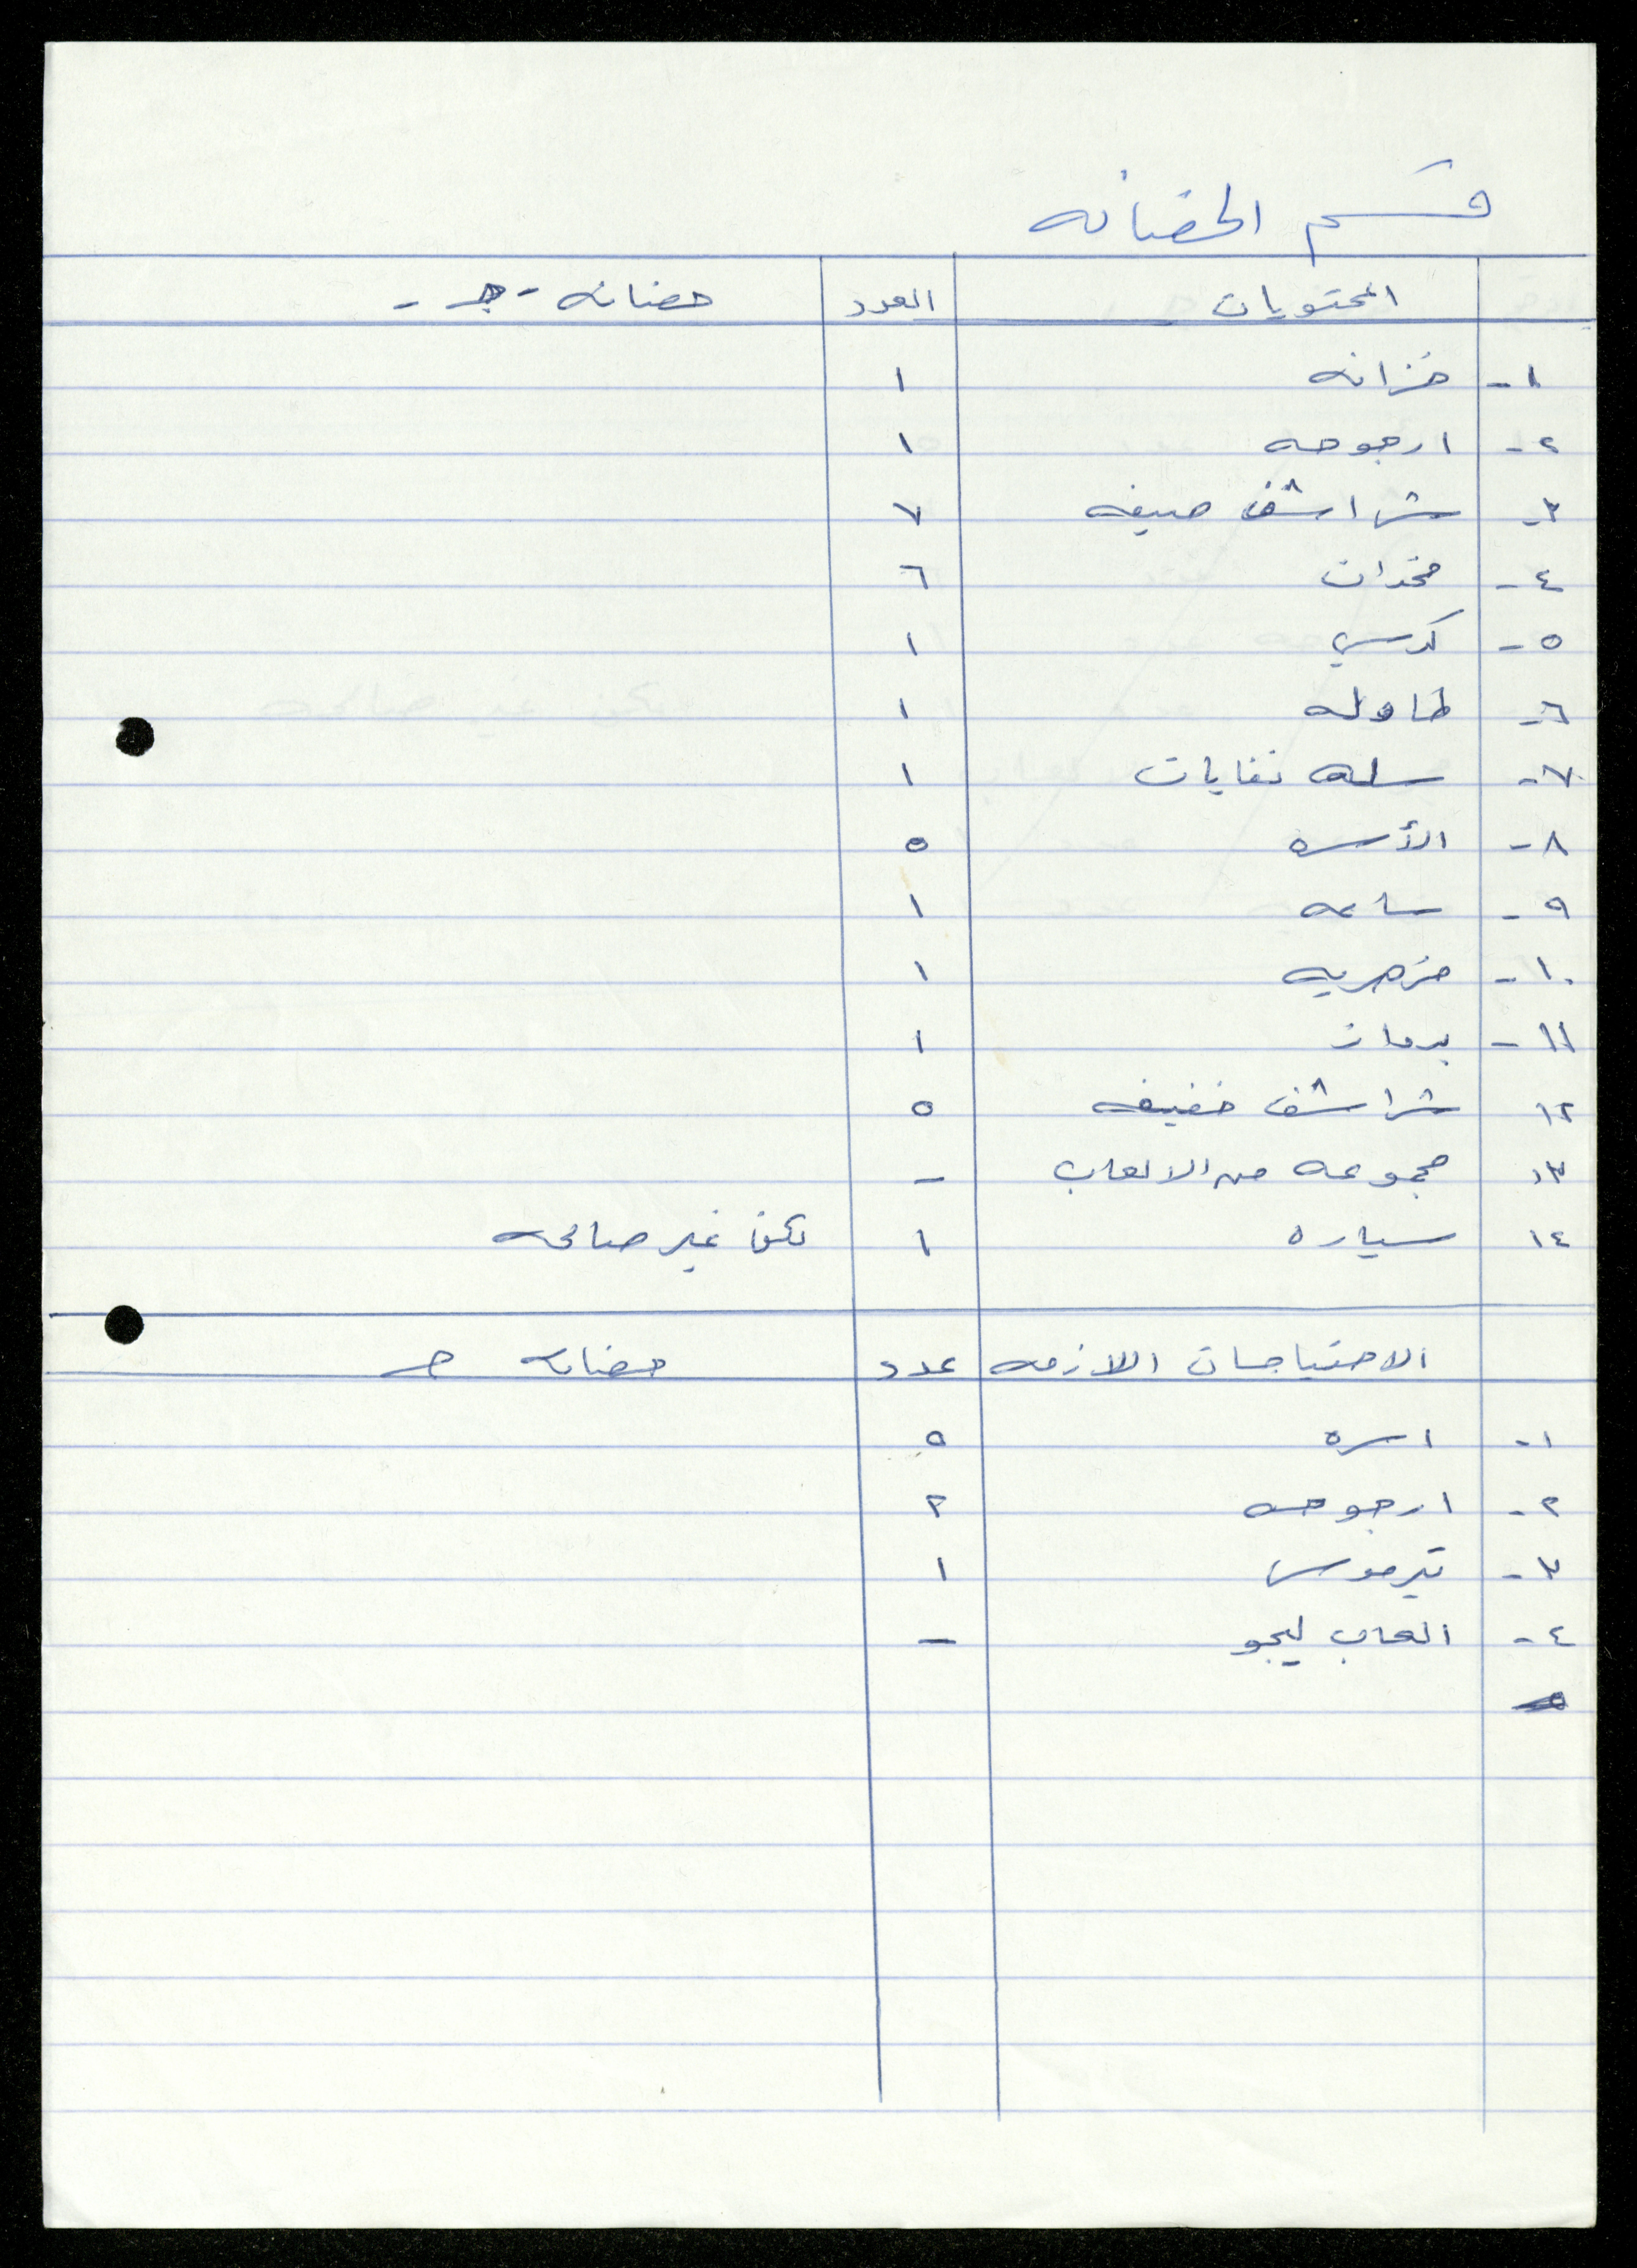 قسم الحضانه
المحتويات العدد حضانه - جـ -
١- خزانه ١
٢- ارجوحه ١
٣- شراشف صيفه ٧
٤- مخدات ٦
٥- كرسي ١
٦- طاوله ١
٧- سله نفايات ١
٨- الأسره ٥
٩- ساعه ١
١٠- مزهريه ١
١١- ١
١٢ شراشف خفيفه ٥
١٣ مجموعه من الالعاب -
١٤ سياره ١ لكن غير صالحه
الاحتياجات اللازمه عدد حضانه جـ
١- اسره ٥
٢- ارجوحه ٢
٣- تيرموس ١
٤- العاب ليجو -